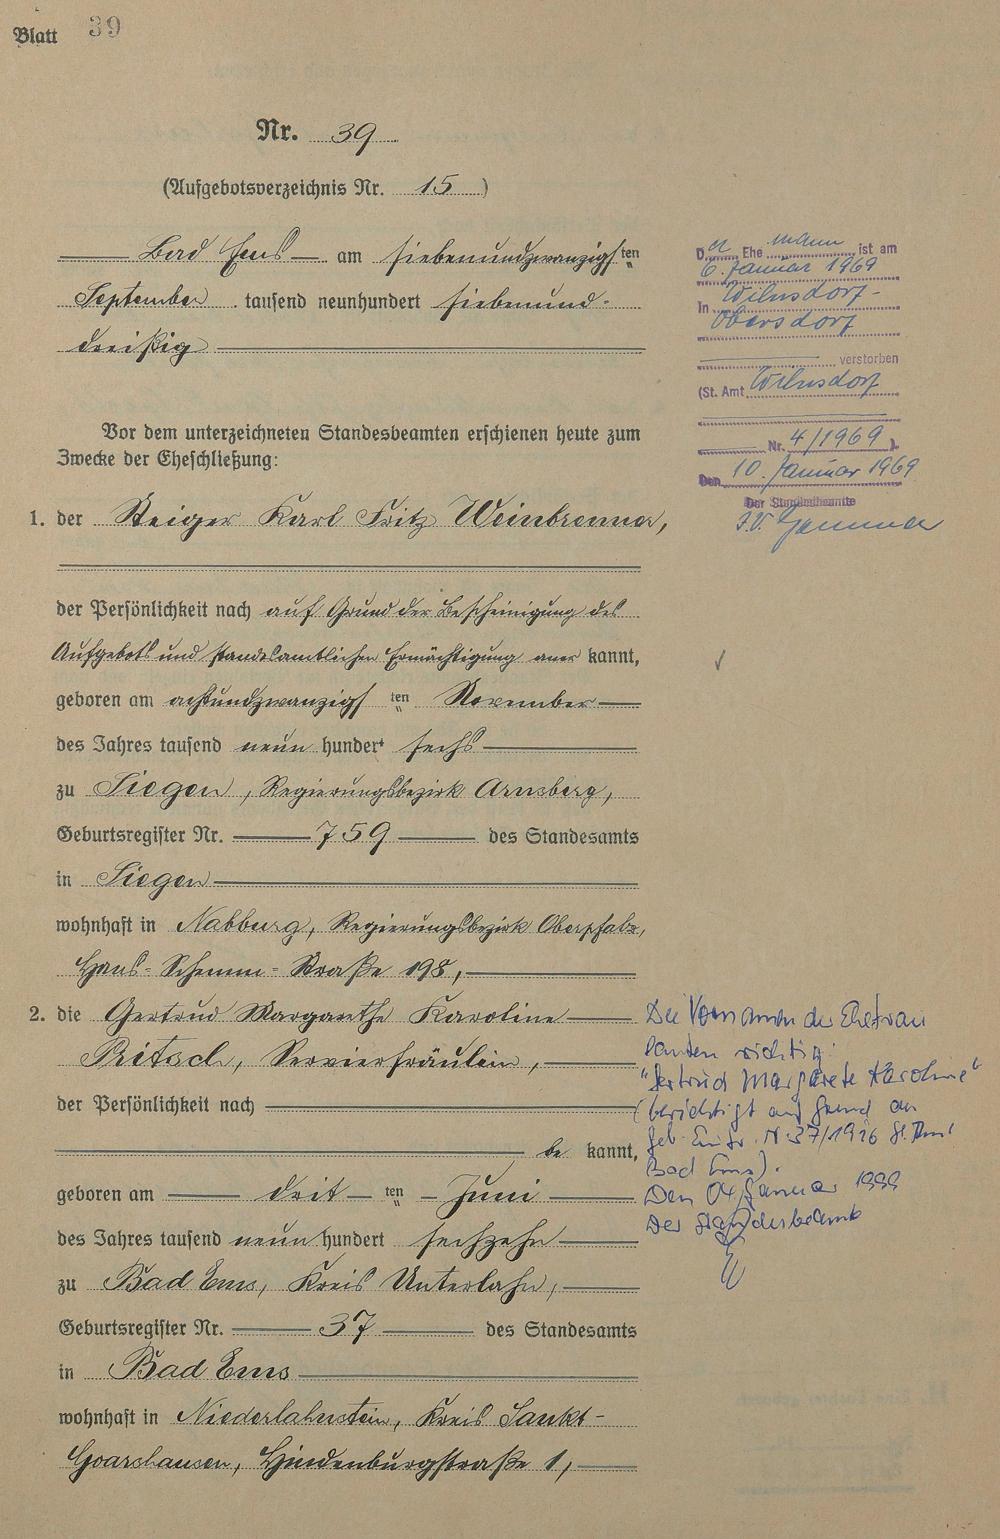 Blatt 39
Nr. 39
(Aufgebotsverzeichnis Nr. 15)
Bad Ems am siebenundzwanzigsten
September tausend neunhundert siebenund-
dreißig
Vor dem unterzeichneten Standesbeamten erschienen heute zum
Zwecke der Eheschließung:
1. der Steiger Karl Fritz Weinbrenner,
der Persönlichkeit nach auf Grund der Bescheinigung des
Aufgebots und standesamtlichen Ermächtigung aner kannt,
geboren am achtundzwanzigsten November
des Jahres tausend neun hundert sechs
zu Siegen, Regierungsbezirk Arnsberg,
Geburtsregister Nr. 759 des Standesamts
in Siegen
wohnhaft in Nabburg, Regierungsbezirk Oberpfalz,
Hans-Schemm-Straße 198,
2. die Gertrud Margarethe Karoline
Pritsch, Servierfräulein,
der Persönlichkeit nach
be kannt,
geboren am dritten Juni
des Jahres tausend neun hundert sechzehn
zu Bad Ems, Kreis Unterlahn,
Geburtsregister Nr. 37 des Standesamts
in Bad Ems
wohnhaft in Niederlahnstein, Kreis Sankt-
Goarshausen, Hindenburgstraße 1,
Der Ehemann ist am
6. Januar 1969
in Wilnsdorf-
Obersdorf
verstorben
(St. Amt Wilnsdorf
Nr. 4/1969).
Den 10. Januar 1969
Der Standesbeamte
I.V.
Die Vornamen der Ehefrau
lauten richtig:
"Gertrud Margarete Karoline"
(berichtigt auf Grund der
Geb. Eintr. Nr. 37/1916 St. Amt
Bad Ems).
Den 04. Januar 1999
Der Standesbeamte